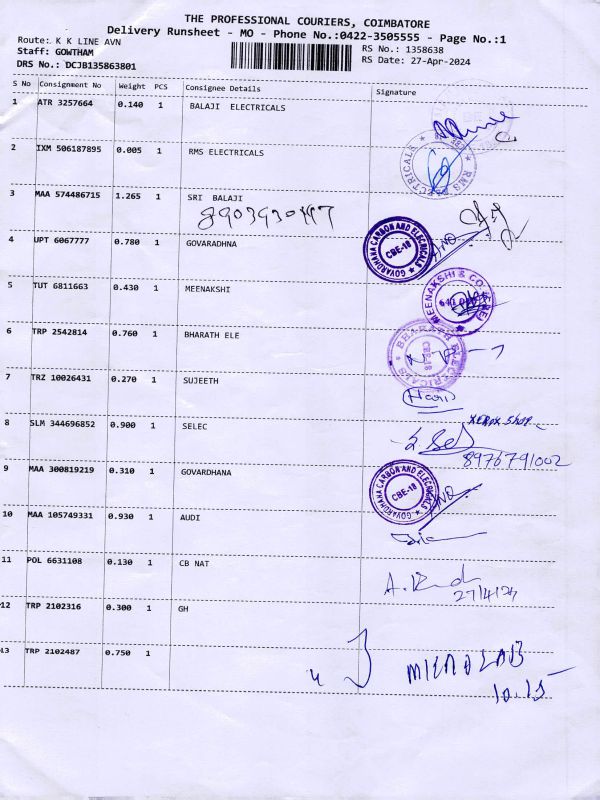 THE PROFESSIONAL COURIERS, COIMBATORE
Delivery Runsheet - MO - Phone No.:0422-3505555 - Page No.:1
Route: K K LINE AVN
Staff: GOWTHAM
DRS No.: DCJB135863801
RS No.: 1358638
RS Date: 27-Apr-2024
S No Consignment No Weight PCS Consignee Details Signature
1 ATR 3257664 0.140 1 BALAJI ELECTRICALS
2 IXM 506187895 0.005 1 RMS ELECTRICALS
3 MAA 574486715 1.265 1 SRI BALAJI
4 UPT 6067777 0.780 1 GOVARADHNA
GOVARDHANA CARBON AND ELECRICALS
CBE-18
5 TUT 6811663 0.430 1 MEENAKSHI
MEENAKSHI & CO
6 TRP 2542814 0.760 1 BHARATH ELE
BHARATH ELECTRICALS
7 TRZ 10026431 0.270 1 SUJEETH
Hari
8 SLM 344696852 0.900 1 SELEC
XEROX SHOP
8976791002
9 MAA 300819219 0.310 1 GOVARDHANA
GOVARDHANA CARBON AND ELECRICALS
CBE-18
10 MAA 105749331 0.930 1 AUDI
11 POL 6631108 0.130 1 CB NAT
27/4/24
12 TRP 2102316 0.300 1 GH
13 TRP 2102487 0.750 1
MICROLAB
10.15